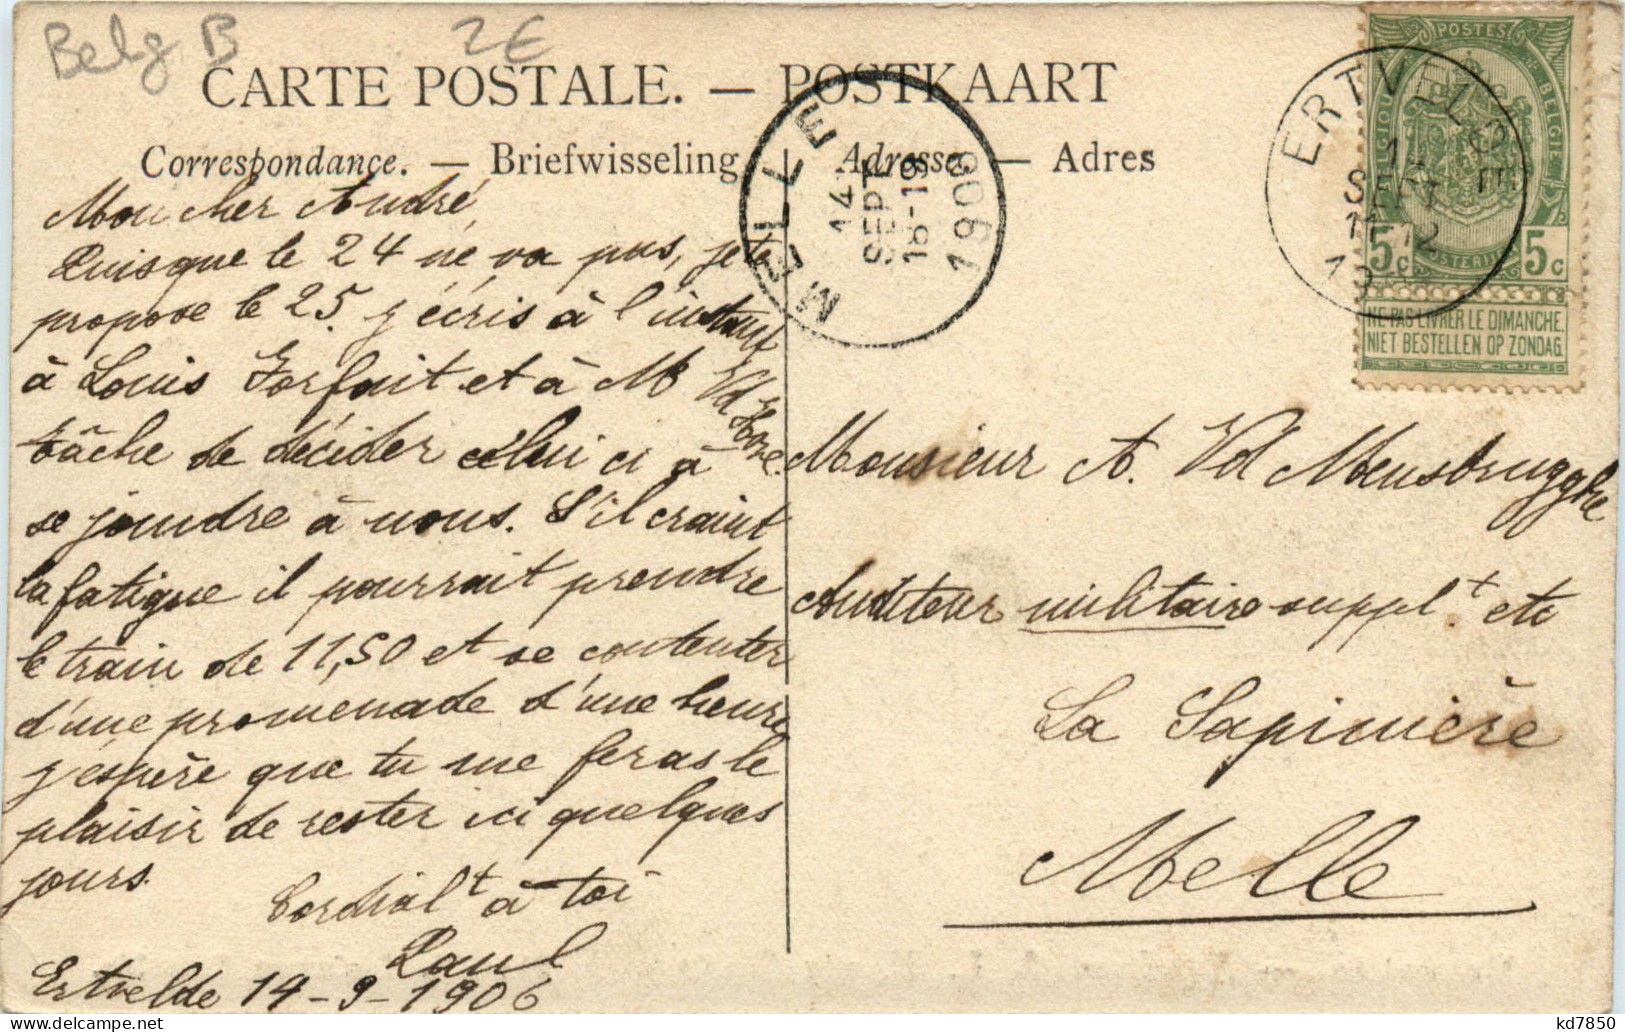 Belg B 2€
CARTE POSTALE. — POSTKAART
Correspondance. — Briefwisseling
Adresse — Adres
Mon cher André,
Puisque le 24 ne va pas, je te
propose le 25. j'écris à l'instant
à Louis Forfait et à M Vd
tâche de décider celui ci à
se joindre à nous. S'il craint
la fatigue il pourrait prendre
le train de 11,50 et se contenter
d'une promenade d'une heure
j'espère que tu me feras le
plaisir de rester ici quelques
jours.
Cordialt à toi
Paul
Ertvelde 14-9-1906
MELLE
14
SEPT
18-19
1906
ERTVELDE
SEPT
11-12
19
POSTES
BELGIQUE
BELGIE
POSTERIJEN
5c 5c
NE PAS LIVRER LE DIMANCHE.
NIET BESTELLEN OP ZONDAG.
Monsieur A. Vd Mensbrugghe
Auditeur militaire supplt. etc
La Sapinière
Melle
kd7850